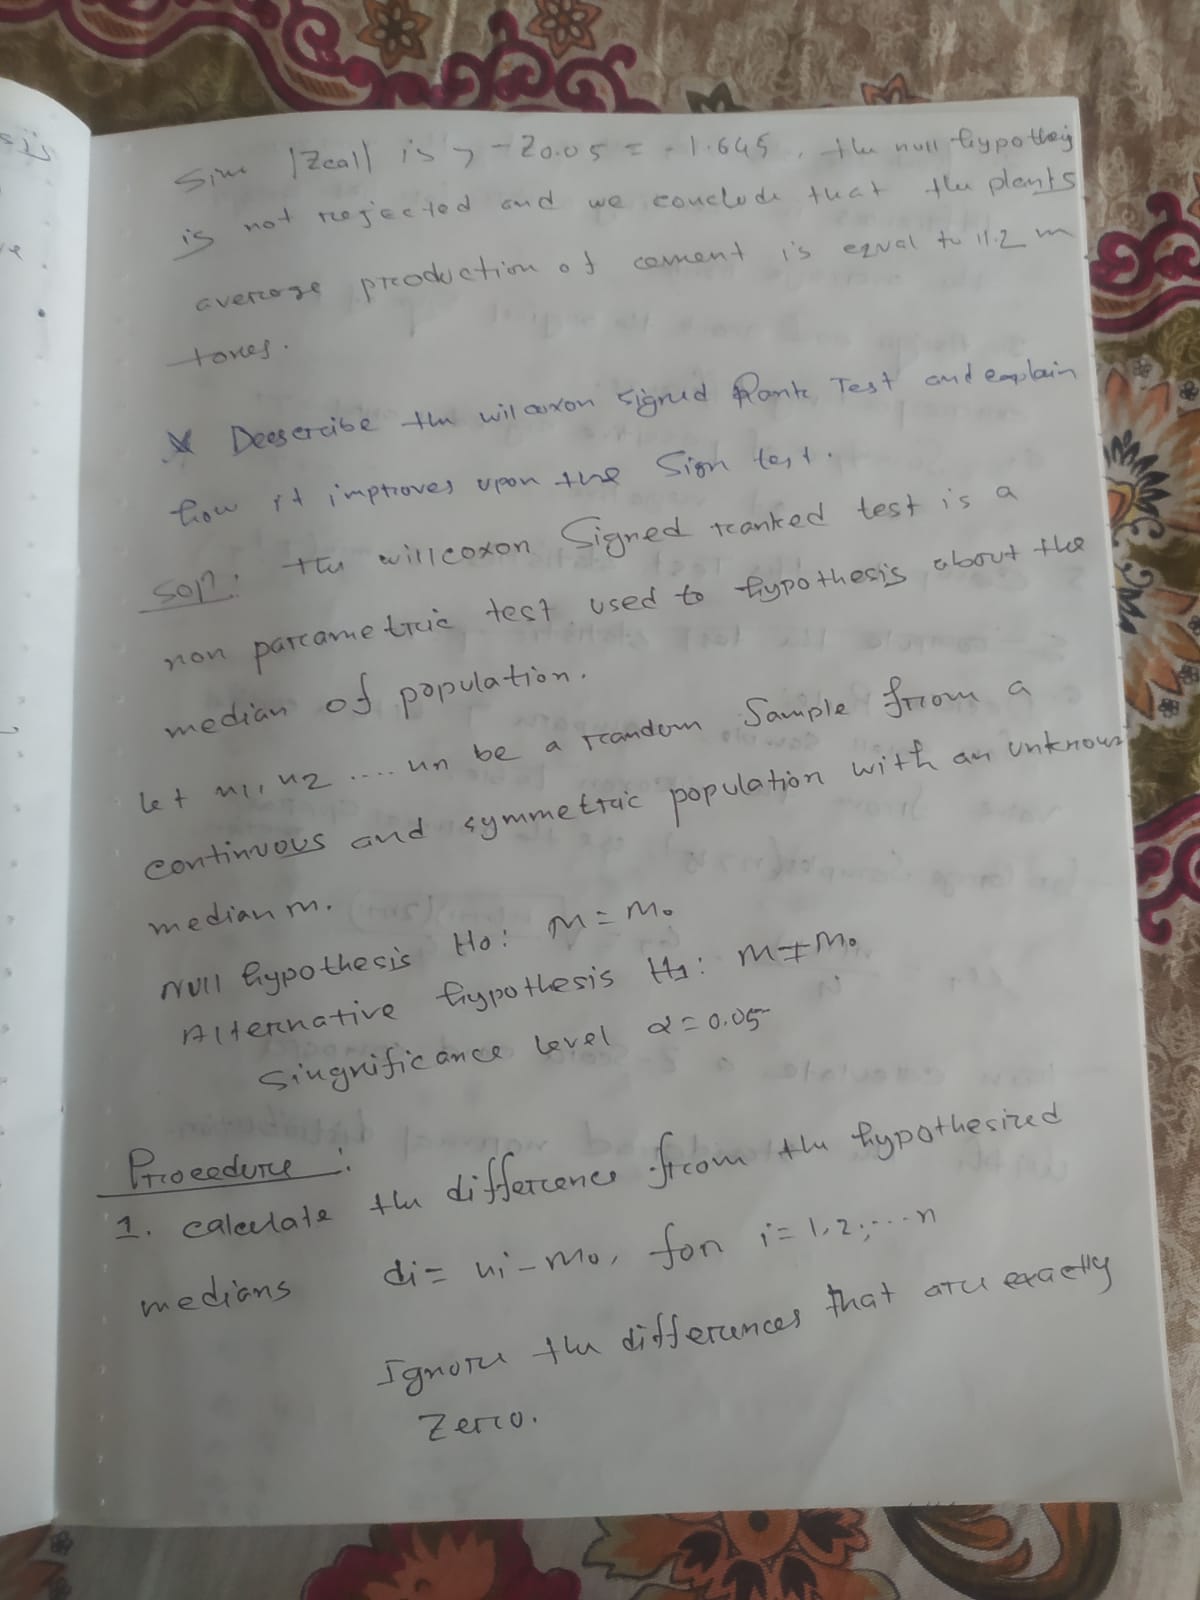 Since |Zcal| is > -Z0.05 = -1.645, the null hypothis
is not rejected and we conclude that the plants
average production of cement is equal to 11.2 m
tones.
Deescribe the wilcoxon signed Rank Test and explain
how it improves upon the Sign test.
Soln: the willcoxon Signed ranked test is a
non parametric test used to hypothesis about the
median of population.
let x1, x2 .... xn be a random Sample from a
continuous and symmetric population with an unknown
median m.
Null hypothesis H0: M = M0
Alternative hypothesis H1: M ≠ M0
Singnificance level α = 0.05
Procedure:
1. calculate the difference from the hypothesized
medians di = xi - M0, for i = 1,2,...n
Ignore the differences that are exactly
Zero.